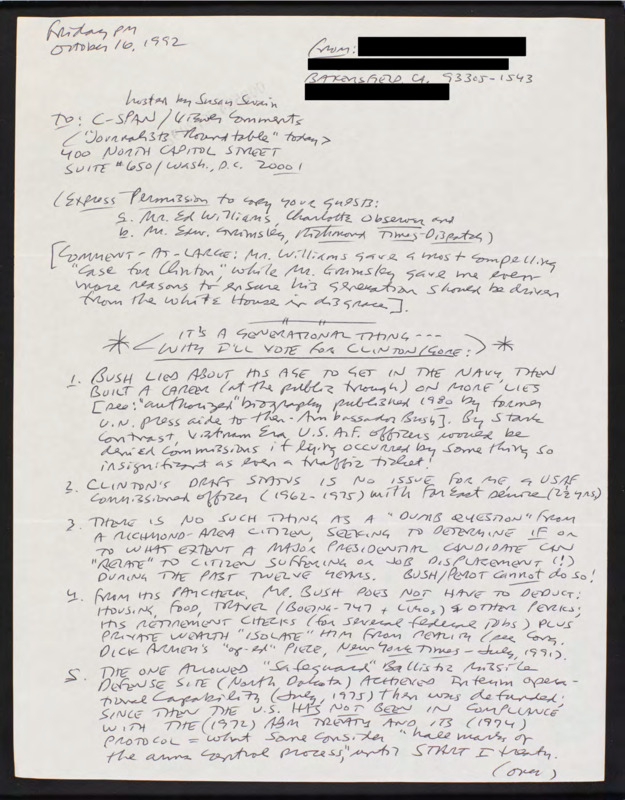 Friday PM
October 16, 1992
From:
BAKERSFIELD CA. 93305-1543
hosted by Susan Swain
TO: C-SPAN / Viewer Comments
("Journalists Roundtable" today)
400 NORTH CAPITOL STREET
SUITE #650/WASH., D.C. 20001
(EXPRESS PERMISSION to copy your guests:
a. Mr. Ed Williams, Charlotte Observer and
b. Mr. Edw. Grimsley, Richmond Times-Dispatch)
[COMMENT-AT-LARGE: Mr. Williams gave a most compelling
"case for Clinton," while Mr. Grimsley gave me even
more reasons to ensure his generation should be driven
from the White House in disgrace].
* < IT'S A GENERATIONAL THING ---
WHY I'LL VOTE FOR CLINTON/GORE: > *
1. BUSH LIED ABOUT HIS AGE TO GET IN THE NAVY, THEN
BUILT A CAREER (at the public trough) ON MORE LIES
[see: "authorized" biography published 1980 by former
U.N. press aide to then-Ambassador Bush]. By stark
contrast, Vietnam Era U.S.A.F. officers would be
denied commissions if lying occurred by something so
insignificant as even a traffic ticket!
2. CLINTON'S DRAFT STATUS IS NO ISSUE FOR ME, a USAF
Commissioned officer (1962-1975) with Far East service (2½ yrs)
3. THERE IS NO SUCH THING AS A "DUMB QUESTION" FROM
A RICHMOND-AREA CITIZEN, SEEKING TO DETERMINE IF OR
TO WHAT EXTENT A MAJOR PRESIDENTIAL CANDIDATE CAN
"RELATE" TO CITIZEN SUFFERING OR JOB DISPLACEMENT (!)
DURING THE PAST TWELVE YEARS. BUSH/PEROT cannot do so!
4. FROM HIS PAYCHECK, MR. BUSH DOES NOT HAVE TO DEDUCT:
HOUSING, FOOD, TRAVEL (BOEING-747 + LIMOS) & OTHER PERKS;
HIS RETIREMENT CHECKS (for several federal jobs) PLUS
PRIVATE WEALTH "ISOLATE" HIM FROM REALITY (see Cong.
DICK ARMEY'S "op-ed" PIECE, NEW YORK TIMES - July, 1991).
5. THE ONE ALLOWED "Safeguard" Ballistic Missile
DEFENSE SITE (North Dakota) ACHIEVED Interim opera-
tional Capability (July, 1975) then was defunded;
SINCE THEN THE U.S. HAS NOT BEEN IN COMPLIANCE
WITH THE (1972) ABM TREATY AND ITS (1974)
PROTOCOL = what some consider "hallmark of
the arms control process," until START I treaty.
(over)